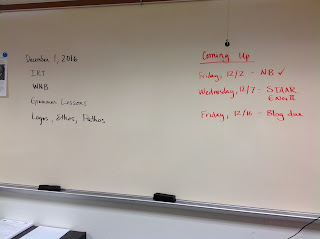 December 1, 2016
IRT
WNB
Grammar Lessons
Logos, Ethos, Pathos
Coming Up
Friday, 12/2 - NB ✓
Wednesday, 12/7 - STAAR
Eng II
Friday, 12/16 - Blog due